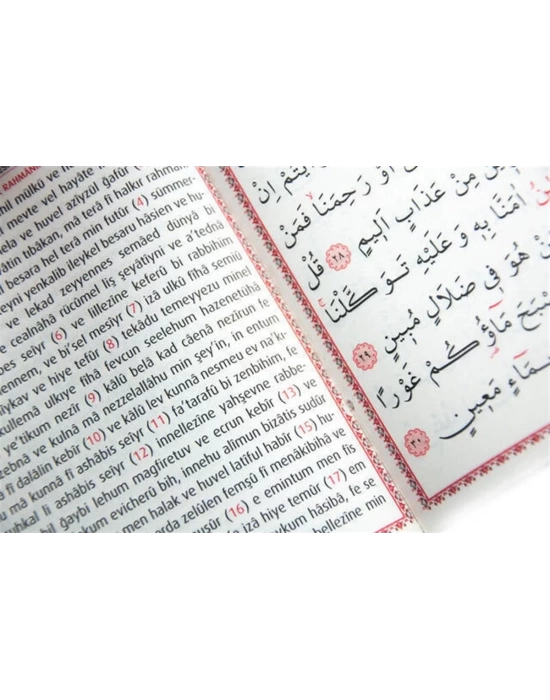 RAHMANI
hil mülkü ve
l mevte vel hayâte
ve huvel azîyzül gafûr
tıbâkan, mâ terâ fî halkır rahmân
besara hel terâ min futûr (4) sümmer-
eyni yenkalib ileykel besaru hâsien ve hu-
ve lekad zeyyennes semâed dünyâ bi
e cealnâhâ rücûmel liş şeyâtîyni ve a'tednâ
bes seîyr (6) ve lillezîne keferû bi rabbihim
ennem, ve bi'sel mesîyr (7) izâ ülkû fîhâ semiû
ıykav ve hiye tefûr (8) tekâdu temeyyezu minel
kullemâ ulkıye fîhâ fevcun seelehum hazenetühâ
e'tikum nezîr (9) kâlû belâ kad câenâ nezîrun fe
zebnâ ve kulnâ mâ nezzelallâhu min şey'in, in entum
â fî dalâlin kebîr (10) ve kâlû lev kunnâ nesmeu ev na'k-
u mâ kunnâ fî ashâbis seîyr (11) fa'tarafû bi zenbihim, fe
uhkal li ashâbis seîyr (12) innellezîne yahşevne rabbe-
bil ğaybi lehum magfiretuv ve ecrun kebîr (13) ve
kum evicherû bih, innehu alîmun bizâtis sudûr
men halak ve huvel latîful habîr (15) hu-
arda zelûlen femşû fî menâkibihâ ve
uşûr (16) e emintum men fis
izâ hiye temûr (17) em
ykum hâsibâ, fe se
bellezîne min
اِنْ
اَوْ رَحِمَنَاۙ فَمَنْ
مِنْ عَذَابٍ اَل۪يمٍ ﴿٢٨﴾ قُلْ
اٰمَنَّا بِه۪ وَ عَلَيْهِ تَوَكَّلْنَاۚ
هُوَ ف۪ي ضَلَالٍ مُب۪ينٍ ﴿٢٩﴾
مَٓاؤُكُمْ غَوْرًا
مَع۪ينٍ ﴿٣٠﴾